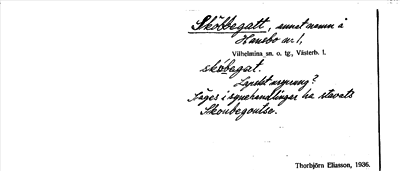 Sköbbegatt, annat namn å
Hansbo nr 1,
Vilhelmina sn. o. tg., Västerb. l.
sköbegat.
Lapskt ursprung?
Säges i synehandlingar ha stavats
Skoubegoutse.
Thorbjörn Eliasson, 1936.